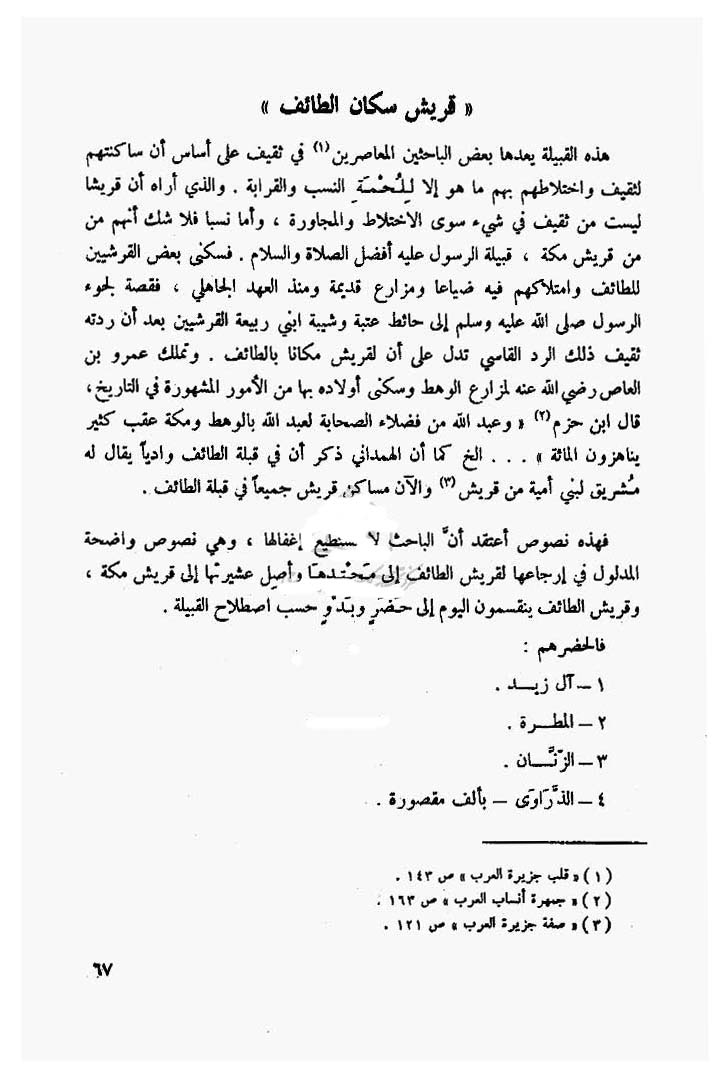 « قريش سكان الطائف »
هذه القبيلة يعدها بعض الباحثين المعاصرين (١) في ثقيف على أساس أن ساكنتهم
لثقيف واختلاطهم بهم ما هو إلا لِلُحْمَةِ النسب والقرابة . والذي أراه أن قريشا
ليست من ثقيف في شيء سوى الاختلاط والمجاورة ، وأما نسبا فلا شك أنهم من
من قريش مكة ، قبيلة الرسول عليه أفضل الصلاة والسلام . فسكنى بعض القرشيين
للطائف وامتلاكهم فيه ضياعا ومزارع قديمة ومنذ العهد الجاهلي ، فقصة لجوء
الرسول صلى الله عليه وسلم إلى حائط عتبة وشيبة ابني ربيعة القرشيين بعد أن ردته
ثقيف ذلك الرد القاسي تدل على أن لقريش مكانا بالطائف . وتملك عمرو بن
العاص رضي الله عنه لمزارع الوهط وسكنى أولاده بها من الأمور المشهورة في التاريخ ،
قال ابن حزم (٢) « وعبد الله من فضلاء الصحابة لعبد الله بالوهط ومكة عقب كثير
يناهزون المائة » . . . الخ كما أن الهمداني ذكر أن في قبلة الطائف وادياً يقال له
مُشريق لبني أمية من قريش (٣) والآن مساكن قريش جميعاً في قبلة الطائف .
فهذه نصوص أعتقد أنَّ الباحث لا يستطيع إغفالها ، وهي نصوص واضحة
المدلول في إرجاعها لقريش الطائف إلى مَحْتِدهَا وأصل عشيرتها إلى قريش مكة ،
وقريش الطائف ينقسمون اليوم إلى حَضَرٍ وبَدْوٍ حسب اصطلاح القبيلة .
فالحضرهم :
١ – آل زيد .
٢ – المطرة .
٣ – الزنَّان .
٤ – الذَّرَاوَى – بألف مقصورة .
(١) « قلب جزيرة العرب » ص ١٤٣ .
(٢) « جمهرة أنساب العرب » ص ١٦٣ .
(٣) « صفة جزيرة العرب » ص ١٢١ .
٦٧